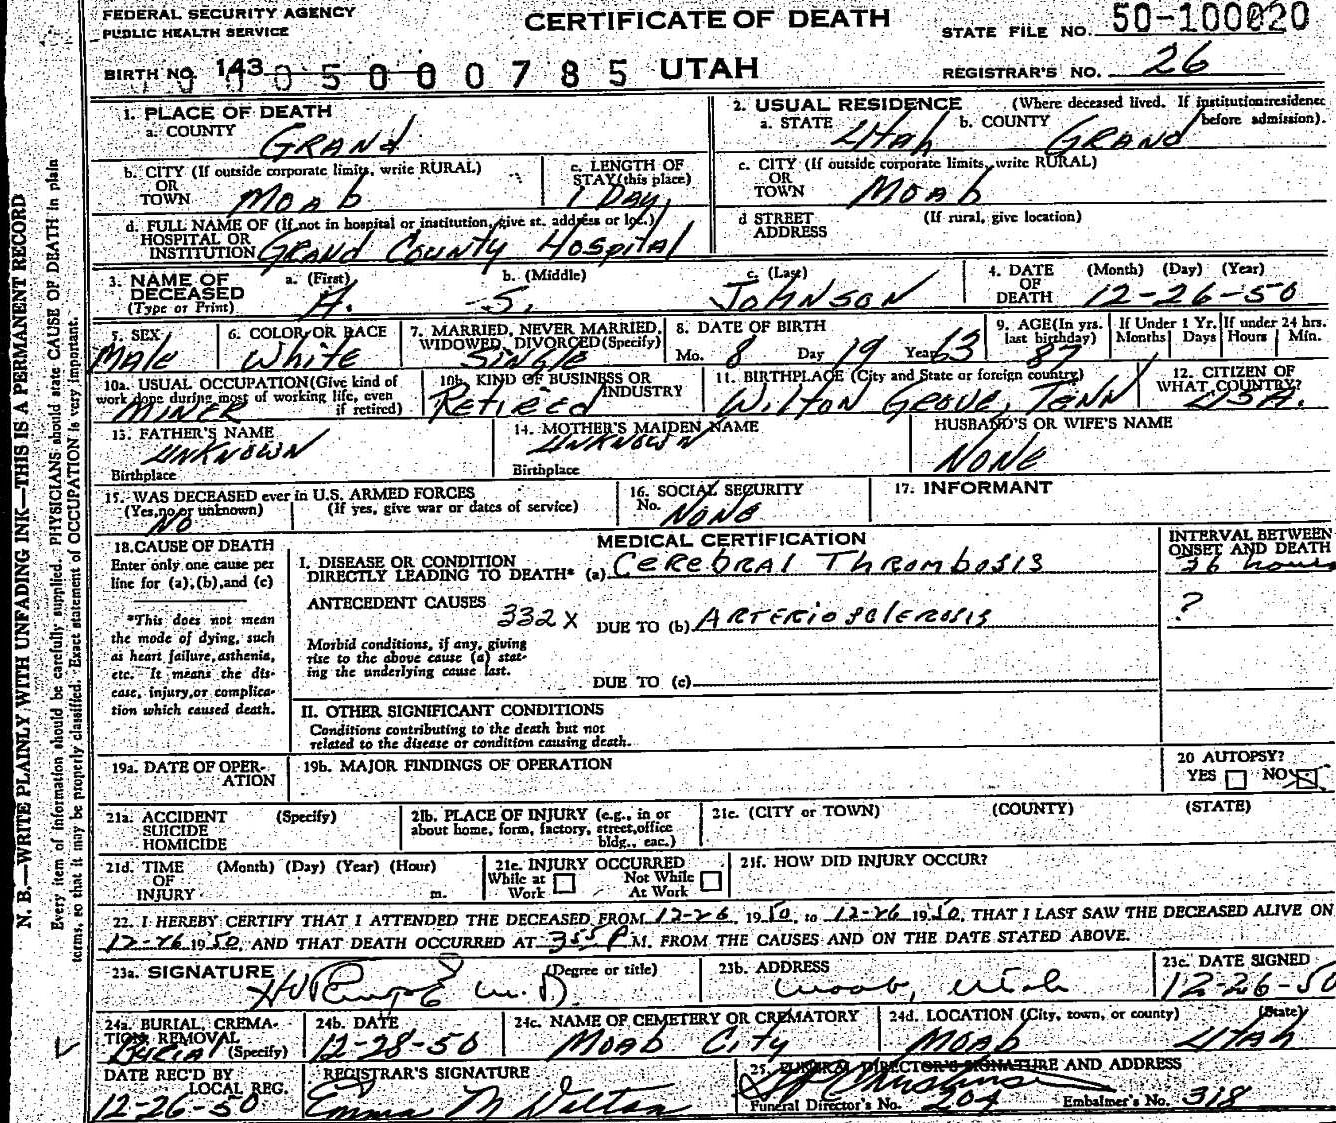 FEDERAL SECURITY AGENCY
PUBLIC HEALTH SERVICE
CERTIFICATE OF DEATH
STATE FILE NO. 50-100020
BIRTH NO. 143 0 5 0 0 0 7 8 5 UTAH
REGISTRAR'S NO. 26
1. PLACE OF DEATH
a. COUNTY Grand
2. USUAL RESIDENCE (Where deceased lived. If institution:residence before admission).
a. STATE Utah b. COUNTY Grand
b. CITY (If outside corporate limits, write RURAL)
OR
TOWN Moab
c. LENGTH OF
STAY (this place)
1 Day
c. CITY (If outside corporate limits, write RURAL)
OR
TOWN Moab
d. FULL NAME OF (If not in hospital or institution, give st. address or loc.)
HOSPITAL OR
INSTITUTION Grand County Hospital
d STREET (If rural, give location)
ADDRESS
3. NAME OF
DECEASED
(Type or Print)
a. (First) H.
b. (Middle) S.
c. (Last) Johnson
4. DATE (Month) (Day) (Year)
OF
DEATH 12-26-50
5. SEX
Male
6. COLOR OR RACE
White
7. MARRIED, NEVER MARRIED,
WIDOWED, DIVORCED (Specify)
Single
8. DATE OF BIRTH
Mo. 8 Day 19 Year 63
9. AGE (In yrs.
last birthday)
87
If Under 1 Yr.
Months Days
If under 24 hrs.
Hours Min.
10a. USUAL OCCUPATION (Give kind of
work done during most of working life, even
if retired)
Miner
10b. KIND OF BUSINESS OR
INDUSTRY
Retired
11. BIRTHPLACE (City and State or foreign country)
Wilton Grove, Tenn
12. CITIZEN OF
WHAT COUNTRY?
USA.
13. FATHER'S NAME
Unknown
Birthplace
14. MOTHER'S MAIDEN NAME
Unknown
Birthplace
HUSBAND'S OR WIFE'S NAME
None
15. WAS DECEASED ever in U.S. ARMED FORCES
(Yes, no or unknown) (If yes, give war or dates of service)
No
16. SOCIAL SECURITY
No. None
17. INFORMANT
18. CAUSE OF DEATH
Enter only one cause per
line for (a), (b), and (c)
*This does not mean
the mode of dying, such
as heart failure, asthenia,
etc. It means the dis-
ease, injury, or complica-
tion which caused death.
MEDICAL CERTIFICATION
INTERVAL BETWEEN
ONSET AND DEATH
I. DISEASE OR CONDITION
DIRECTLY LEADING TO DEATH* (a) Cerebral Thrombosis
36 hours
ANTECEDENT CAUSES
332X DUE TO (b) Arteriosclerosis
?
Morbid conditions, if any, giving
rise to the above cause (a) stat-
ing the underlying cause last.
DUE TO (c)
II. OTHER SIGNIFICANT CONDITIONS
Conditions contributing to the death but not
related to the disease or condition causing death.
19a. DATE OF OPER-
ATION
19b. MAJOR FINDINGS OF OPERATION
20 AUTOPSY?
YES NO X
21a. ACCIDENT (Specify)
SUICIDE
HOMICIDE
21b. PLACE OF INJURY (e.g., in or
about home, form, factory, street, office
bldg., eac.)
21c. (CITY or TOWN) (COUNTY) (STATE)
21d. TIME (Month) (Day) (Year) (Hour)
OF
INJURY m.
21e. INJURY OCCURRED
While at Not While
Work At Work
21f. HOW DID INJURY OCCUR?
22. I HEREBY CERTIFY THAT I ATTENDED THE DECEASED FROM 12-26, 1950, to 12-26 1950, THAT I LAST SAW THE DECEASED ALIVE ON
12-26 1950, AND THAT DEATH OCCURRED AT 355 P M. FROM THE CAUSES AND ON THE DATE STATED ABOVE.
23a. SIGNATURE (Degree or title)
M.D.
23b. ADDRESS
Moab, Utah
23c. DATE SIGNED
12-26-50
24a. BURIAL, CREMA-
TION, REMOVAL
Burial (Specify)
24b. DATE
12-28-50
24c. NAME OF CEMETERY OR CREMATORY
Moab City
24d. LOCATION (City, town, or county) (State)
Moab Utah
DATE REC'D BY
LOCAL REG.
12-26-50
REGISTRAR'S SIGNATURE
Emma M Walton
25. FUNERAL DIRECTOR'S SIGNATURE AND ADDRESS
Funeral Director's No. 204 Embalmer's No. 318
N. B.—WRITE PLAINLY WITH UNFADING INK—THIS IS A PERMANENT RECORD
Every item of information should be carefully supplied. PHYSICIANS should state CAUSE OF DEATH in plain
terms, so that it may be properly classified. Exact statement of OCCUPATION is very important.